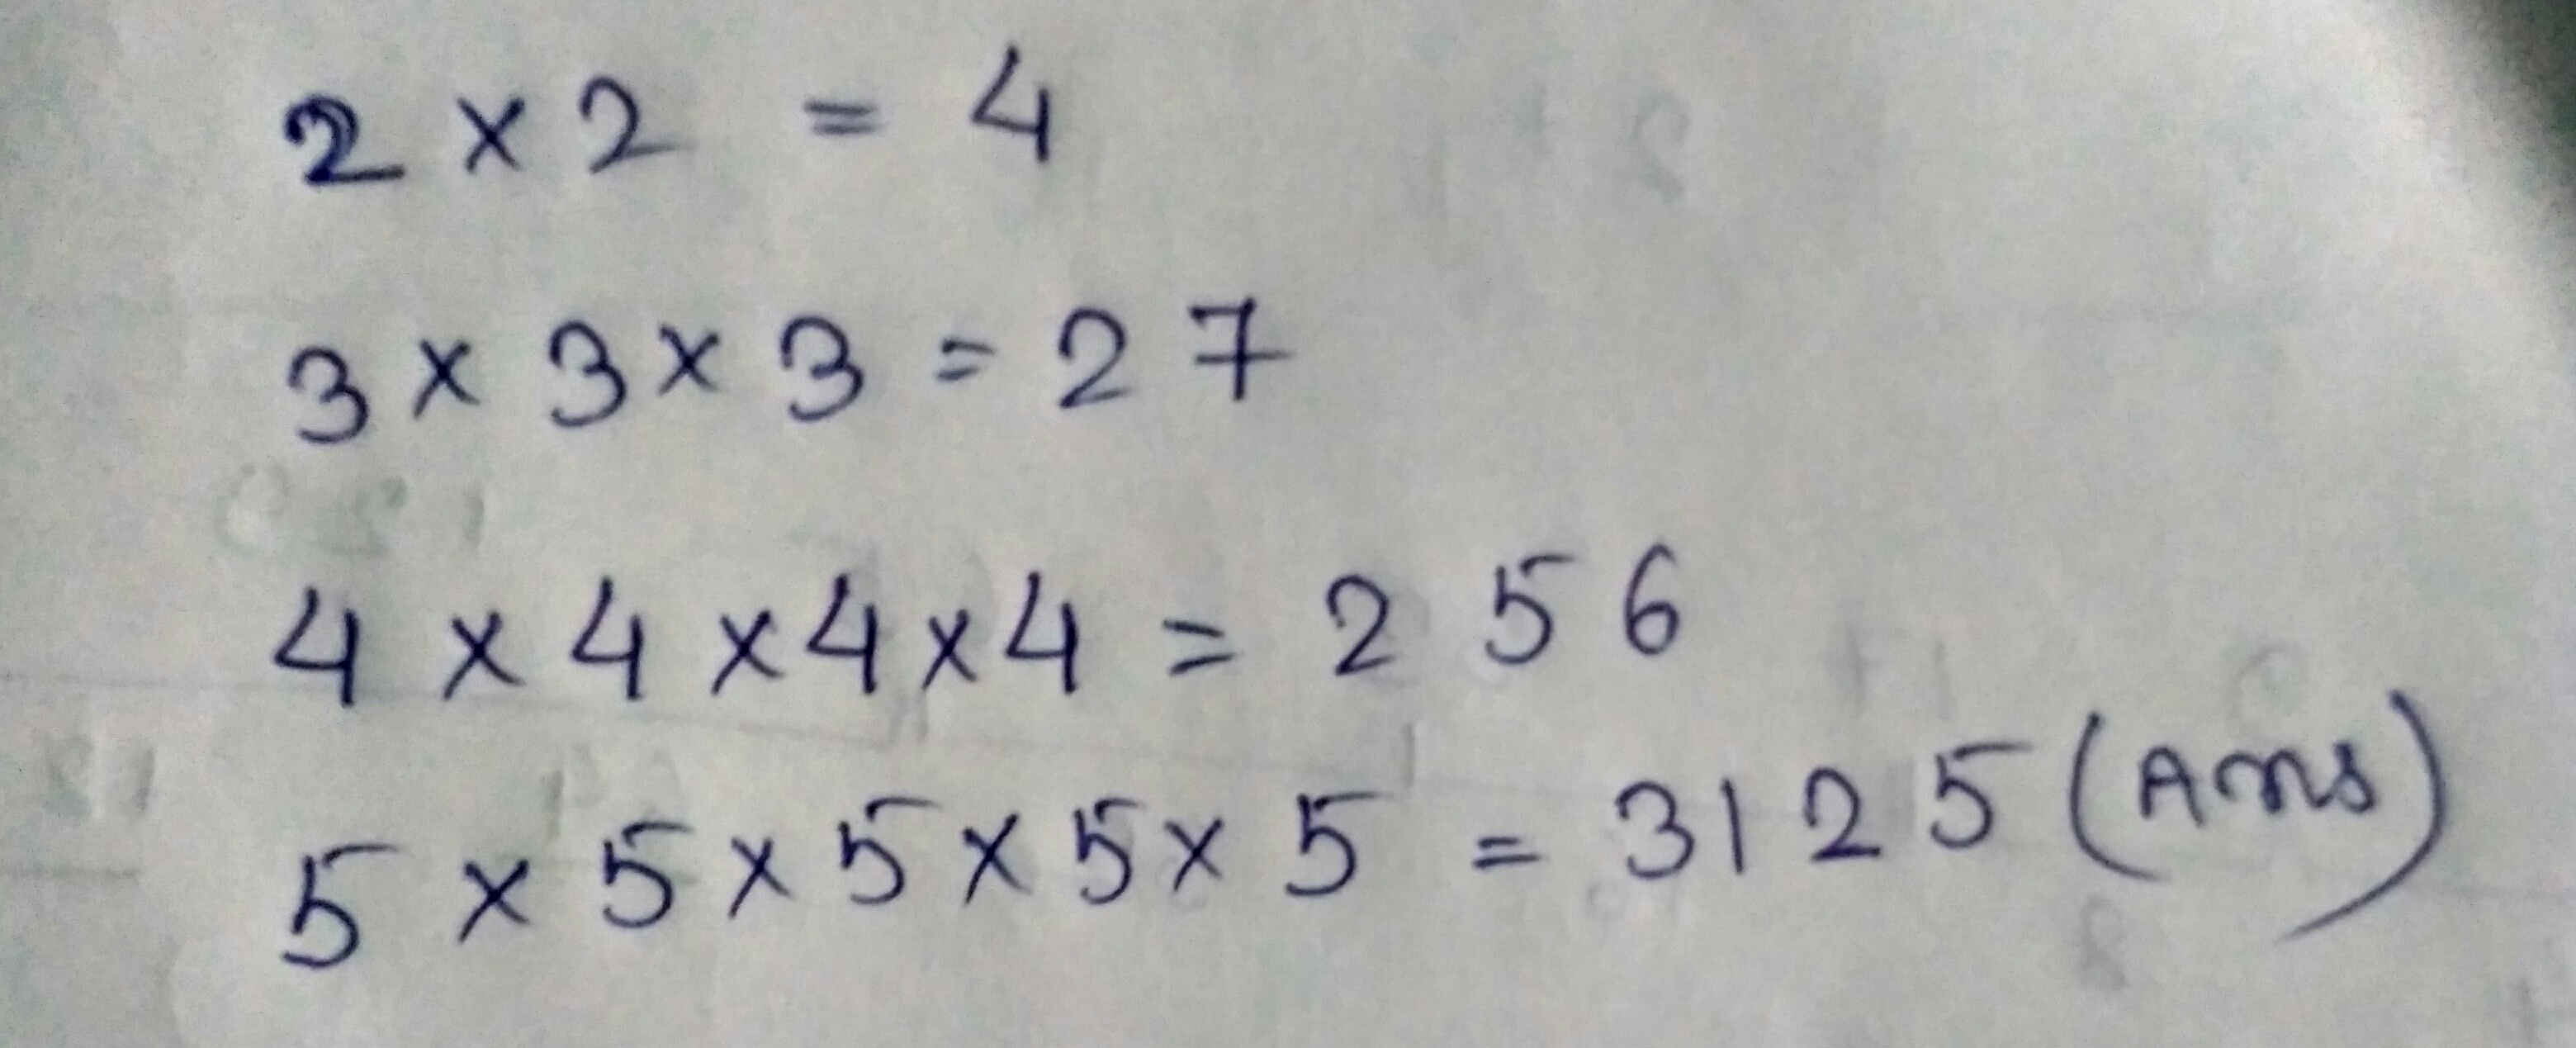 2 × 2 = 4
3 × 3 × 3 = 27
4 × 4 × 4 × 4 = 256
5 × 5 × 5 × 5 × 5 = 3125 (Ans)